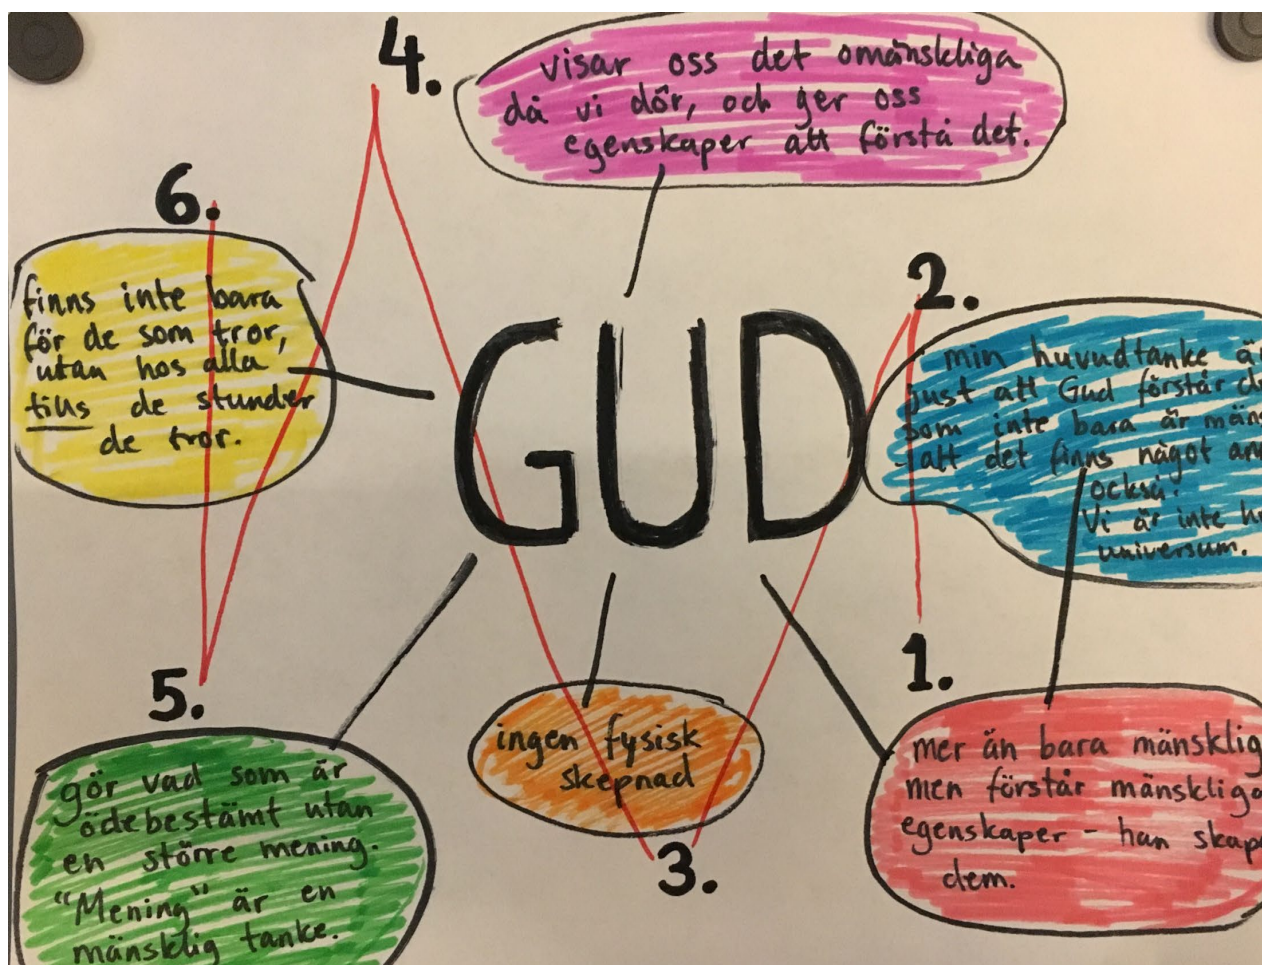 4.
visar oss det omänskliga
då vi dör, och ger oss
egenskaper att förstå det.
6.
finns inte bara
för de som tror,
utan hos alla
tills de stunder
de tror.
GUD
2.
min huvudtanke
just att Gud förstår
som inte bara är
- att det finns något
också.
Vi är inte
universum.
1.
mer än bara
men förstår
egenskaper - han
dem.
3.
ingen fysisk
skepnad
5.
gör vad som är
ödebestämt utan
en större mening.
"Mening" är en
mänsklig tanke.